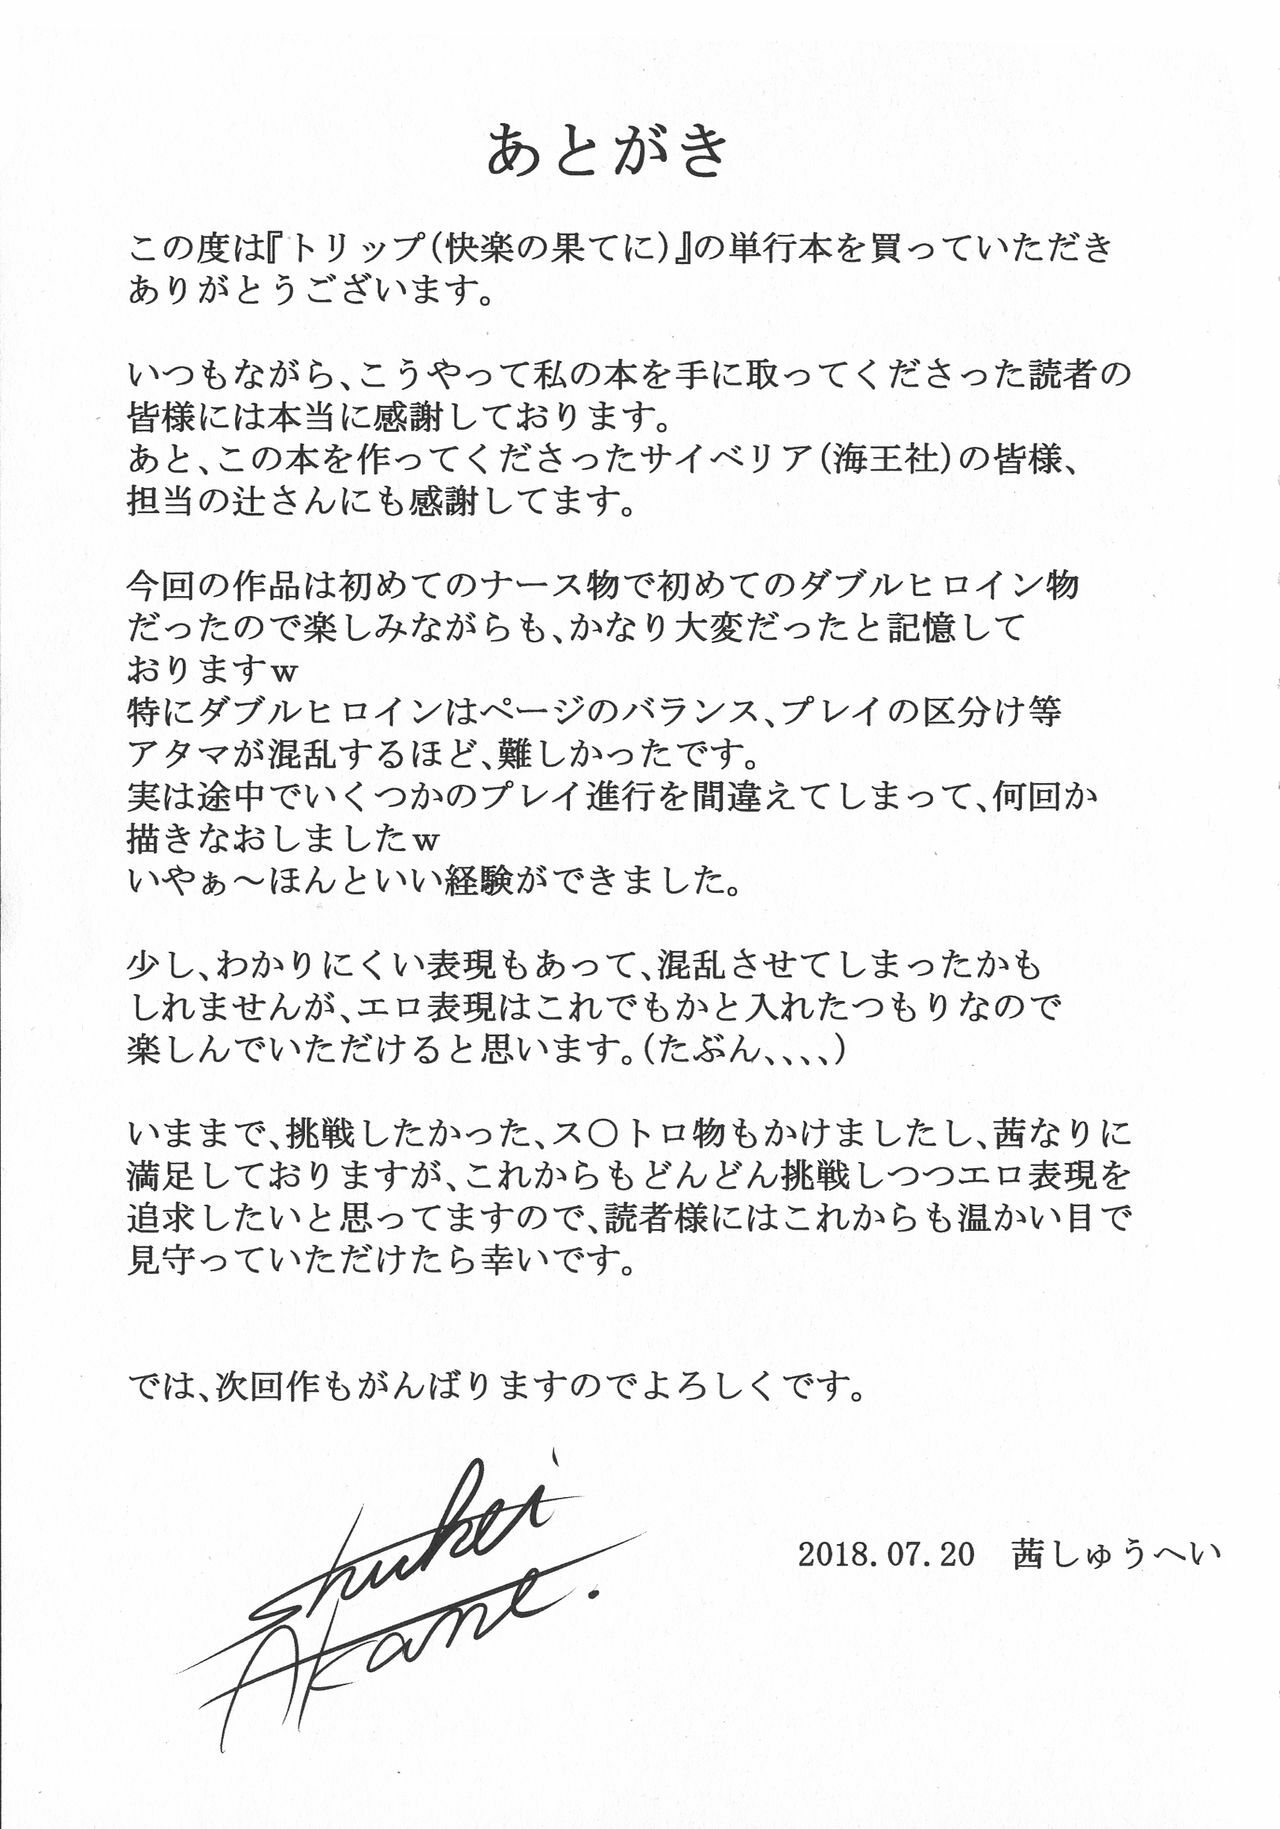 あとがき
この度は『トリップ(快楽の果てに)』の単行本を買っていただき
ありがとうございます。
いつもながら、こうやって私の本を手に取ってくださった読者の
皆様には本当に感謝しております。
あと、この本を作ってくださったサイベリア(海王社)の皆様、
担当の辻さんにも感謝してます。
今回の作品は初めてのナース物で初めてのダブルヒロイン物
だったので楽しみながらも、かなり大変だったと記憶して
おりますw
特にダブルヒロインはページのバランス、プレイの区分け等
アタマが混乱するほど、難しかったです。
実は途中でいくつかのプレイ進行を間違えてしまって、何回か
描きなおしましたw
いやぁ~ほんといい経験ができました。
少し、わかりにくい表現もあって、混乱させてしまったかも
しれませんが、エロ表現はこれでもかと入れたつもりなので
楽しんでいただけると思います。(たぶん、、、、)
いままで、挑戦したかった、ス〇トロ物もかけましたし、茜なりに
満足しておりますが、これからもどんどん挑戦しつつエロ表現を
追求したいと思ってますので、読者様にはこれからも温かい目で
見守っていただけたら幸いです。
では、次回作もがんばりますのでよろしくです。
Shuhei
Akane.
2018.07.20 茜しゅうへい